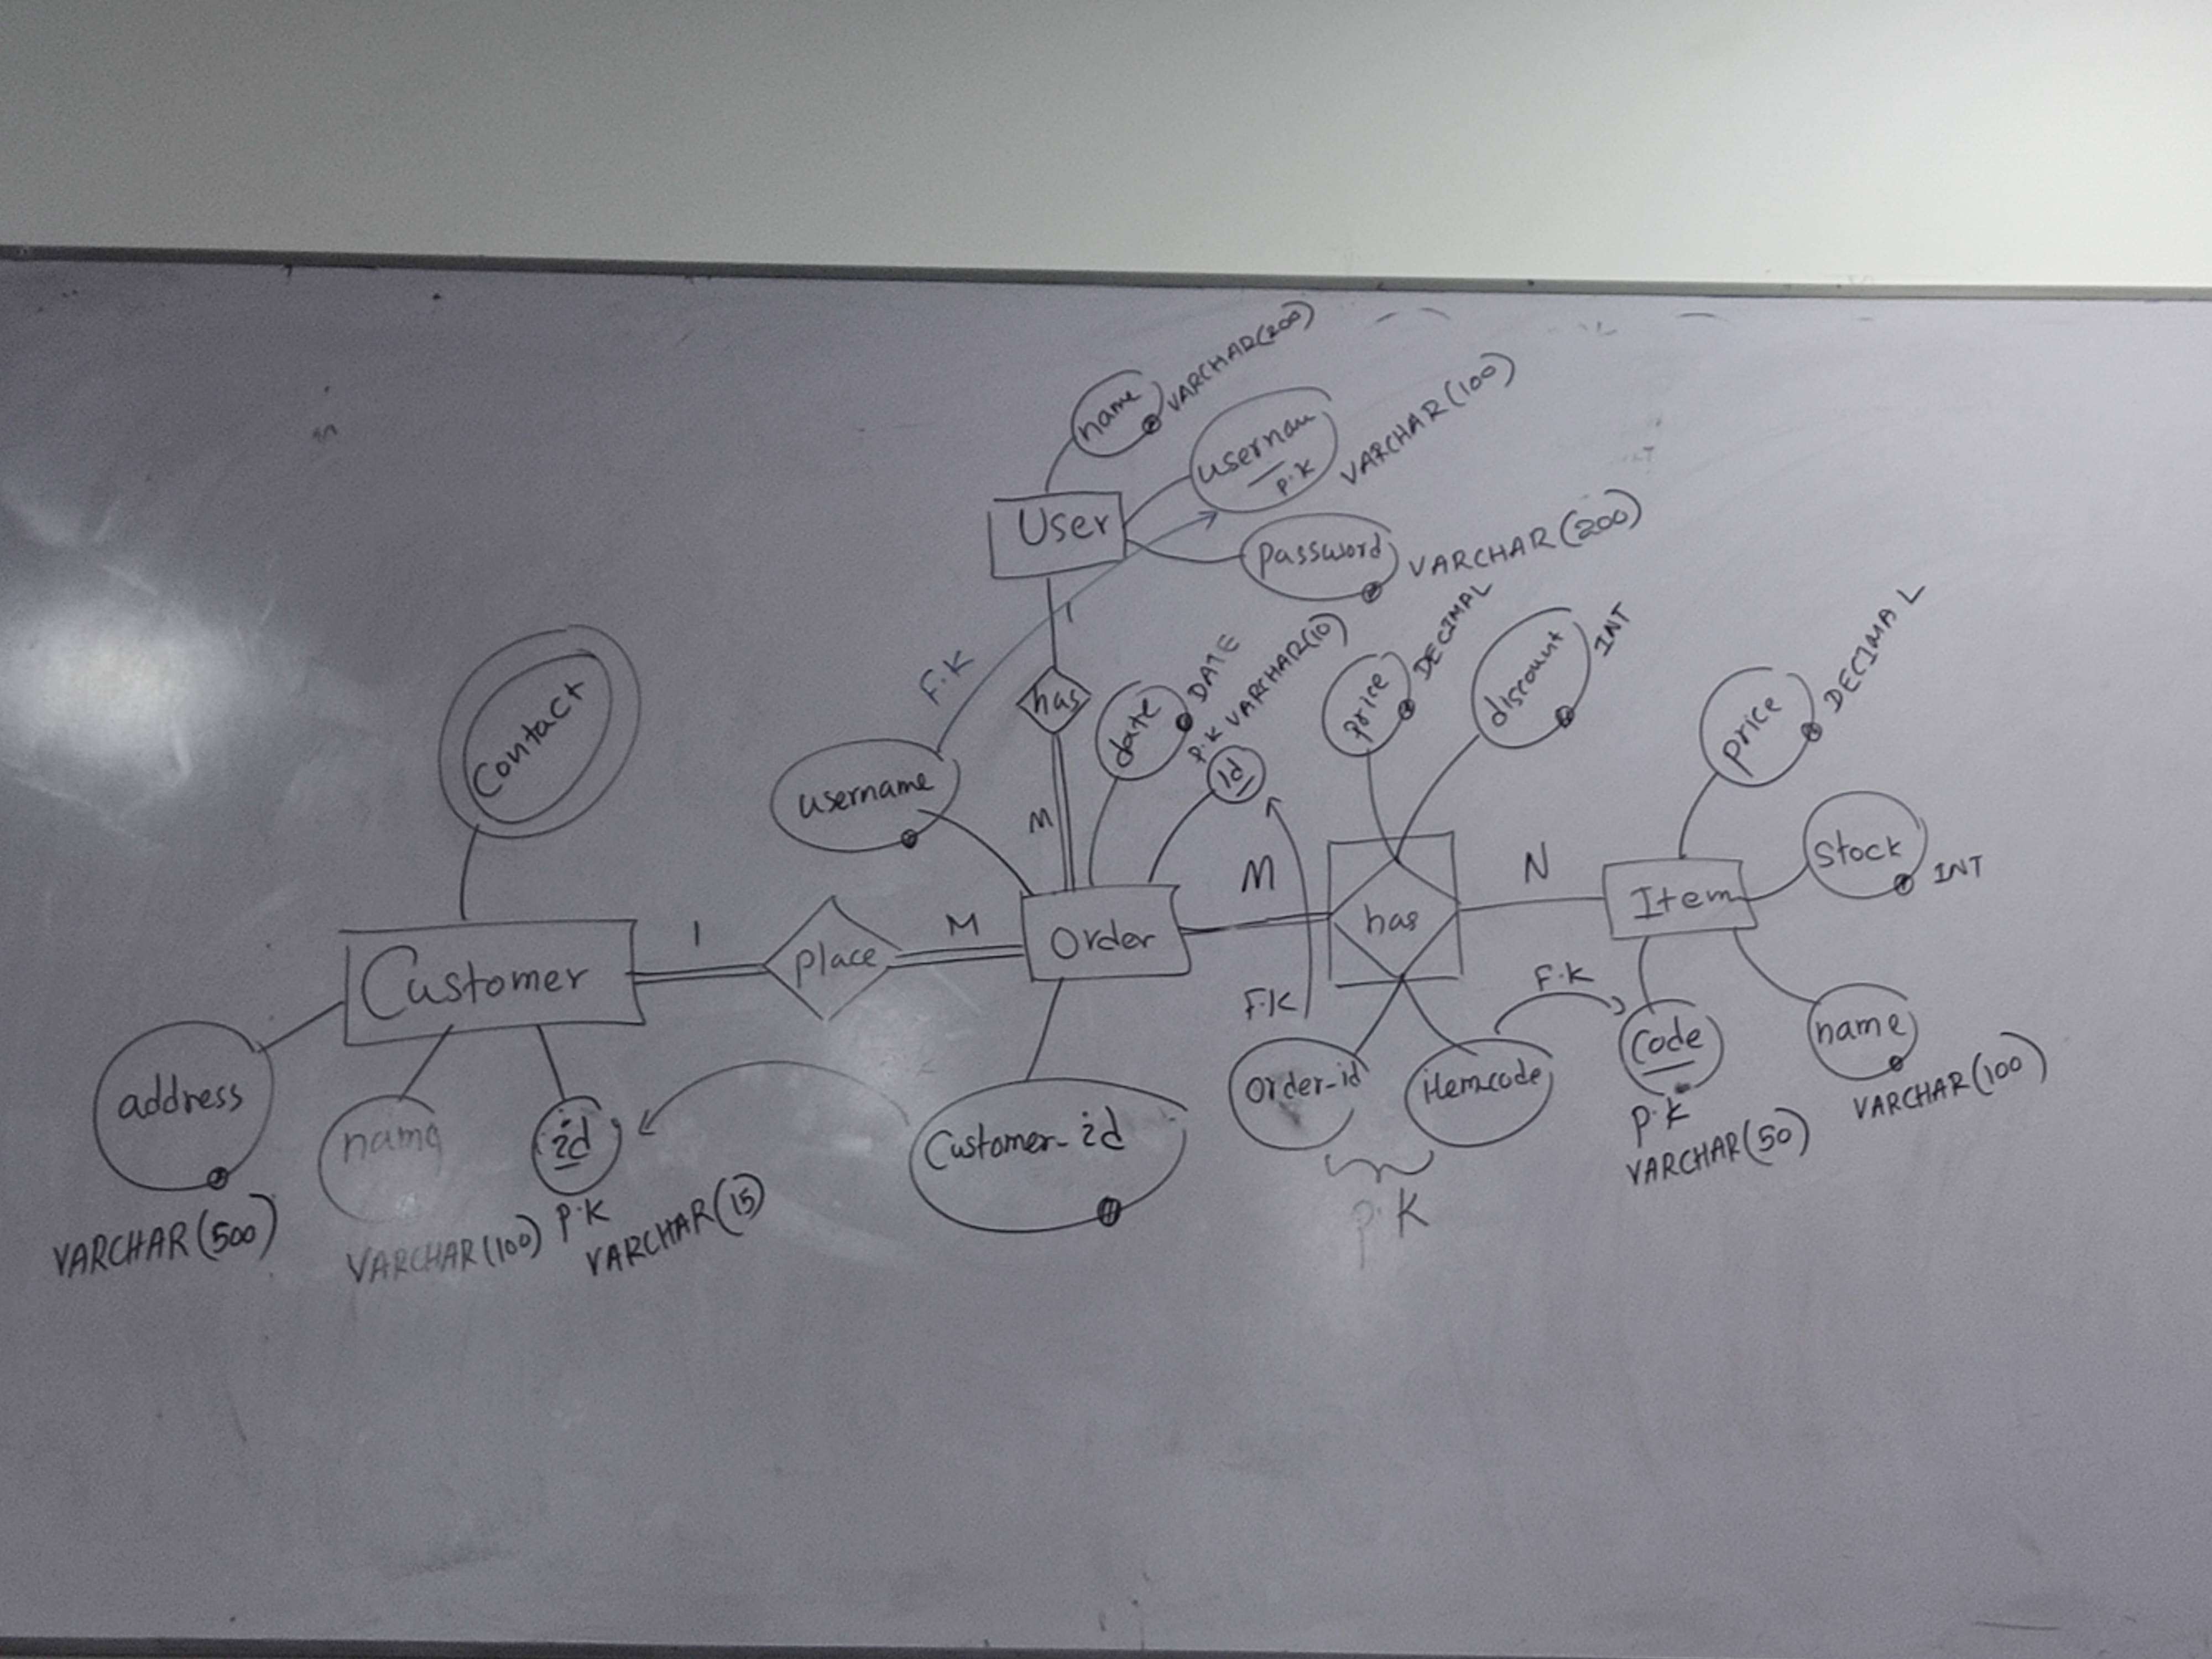 name
VARCHAR(200)
usernam
P.K
VARCHAR(100)
User
password
VARCHAR(200)
1
F.K
has
date
DATE
P.K VARCHAR(10)
id
price
DECIMAL
discount
INT
price
DECIMAL
Contact
username
M
M
N
Stock
INT
Customer
1
place
M
Order
has
Item
F.K
F.K
address
VARCHAR(500)
name
VARCHAR(100)
id
P.K
VARCHAR(15)
Customer-id
Order-id
Item-code
P.K
Code
P.K
VARCHAR(50)
name
VARCHAR(100)